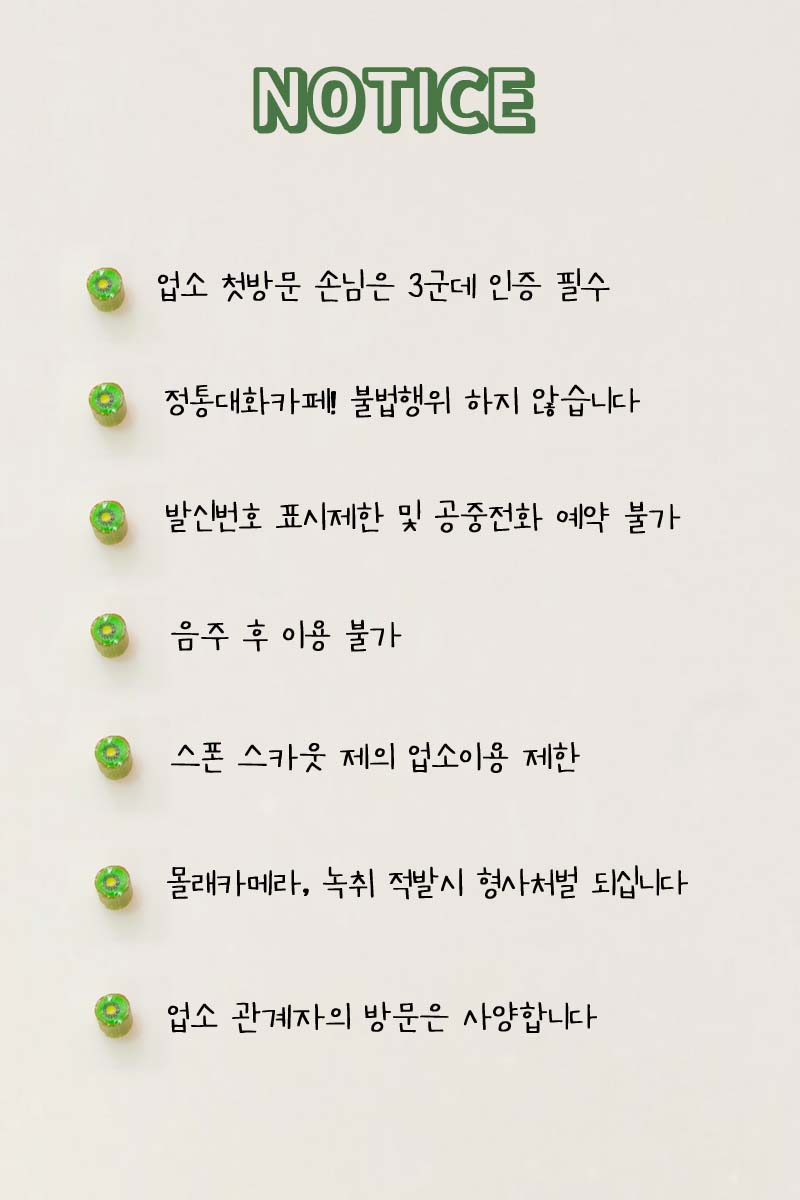 NOTICE
업소 첫방문 손님은 3군데 인증 필수
정통대화카페! 불법행위 하지 않습니다
발신번호 표시제한 및 공중전화 예약 불가
음주 후 이용 불가
스폰 스카웃 제의 업소이용 제한
몰래카메라, 녹취 적발시 형사처벌 되십니다
업소 관계자의 방문은 사양합니다